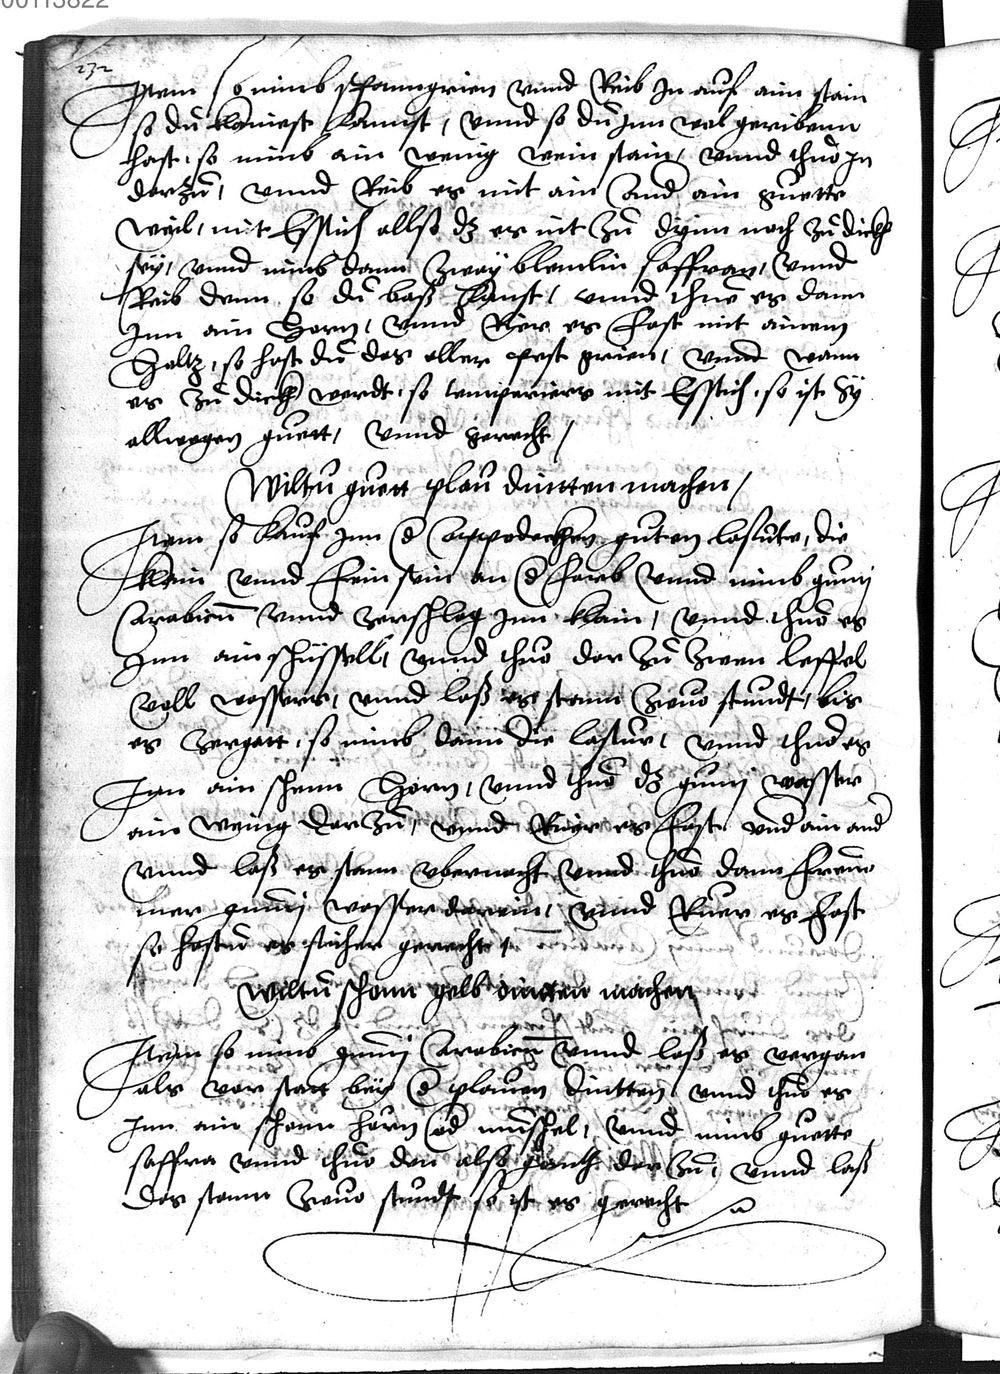 00113822
232
Item so nimb spanngrien vnnd Reib In auf aim stain
so du klainest kannst, vnnd so du Inn wol geribenn
hast, so nimb ain wenig wein stain, vnnd thuo In
darzu, vnnd Reib es mit ain And ain guette
weil, mit Essich allso dz es nit zu dyinn noch zu dickh
sey, vnnd nimb dann zway blemlin saffran, vnnd
Reib denn so du bast kanst, vnnd thue es dann
Inn ain Horn, vnnd Rier es fast mit ainem
Holtz, so hast du das aller Erst grien, vnnd wann
es zu dickh werdt, so temperiers mit Essich, so ist Sy
allwegen guett, vnnd gerecht,
Wiltu guett plau dintten machen,
Item so kauf Inn d Appodeckhen guten lasur, die
klain vnnd fein sein an d farb vnnd nimb gumi
Arabicum vnnd zerschlag Inn klain, vnnd thuo es
Inn ain schüssell, vnnd thuo dar zu zwen leffel
voll wassers, vnnd lass es stann zwuo stundt, bis
es zergatt, so nimb dann die lasur, vnnd thuo es
Inn ain schenn Horn, vnnd thuo dz gumi wasser
ain wenig darzu, vnnd Rier es fast vnd ain and
vnnd lass es stann vbernacht vnnd thuo dann
mer gumi wasser darein, vnnd Ruer es fast
so hastu es sicher gerecht,
Wiltu schonn gelb dintten machen
Item so nimb gumi Arabicum vnnd lass es zergan
als vor statt bey d plauen dintten, vnnd thuo es
Inn ain schonn horn od muschel, vnnd nimb guette
saffra vnnd thuo den also darzu, vnnd lass
das stann zwuo stundt so ist es gerecht